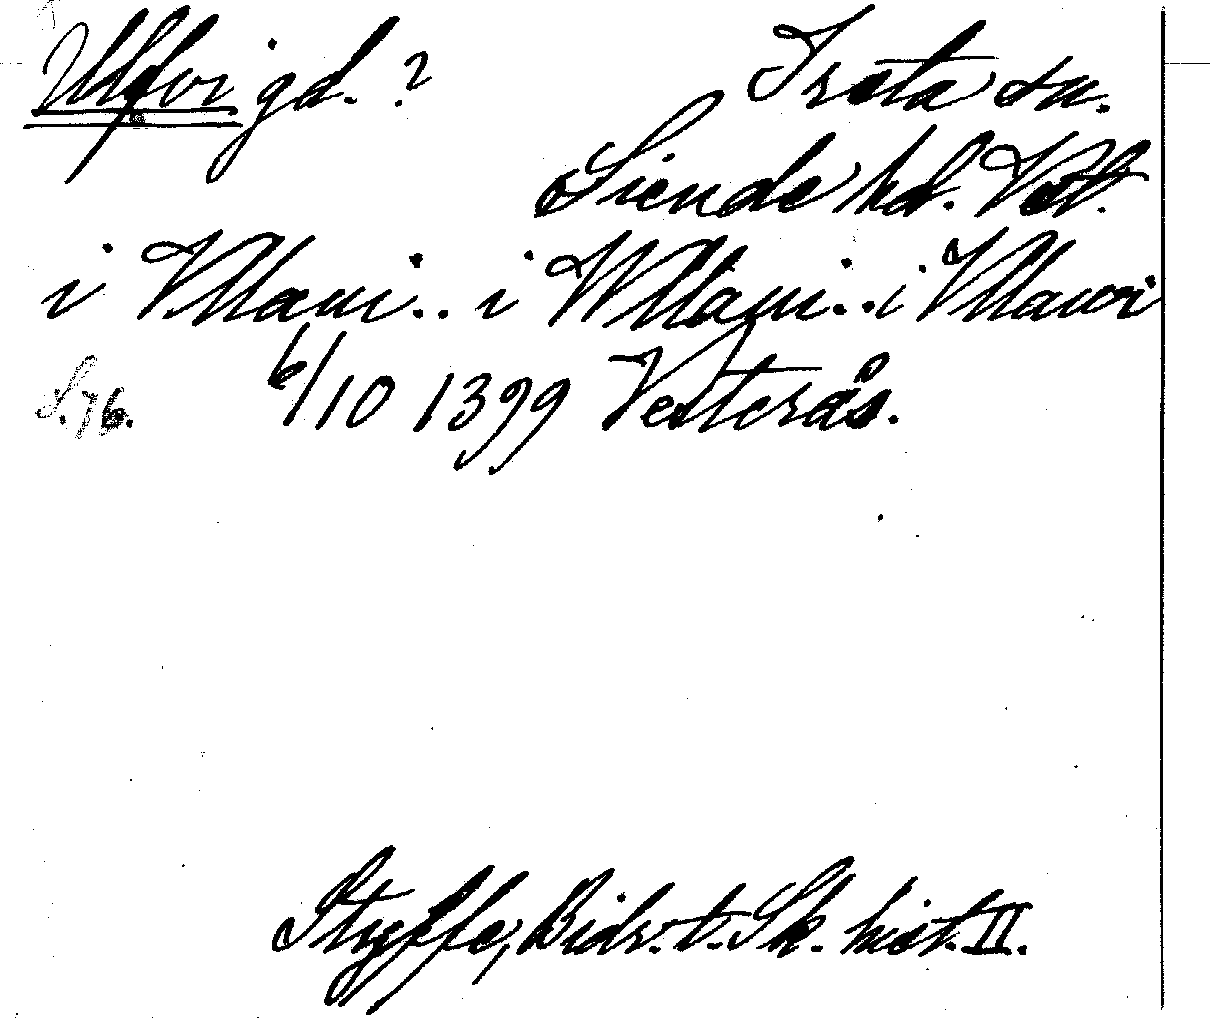 Ulfvi gd. ?
Irsta sn.
Siende hd. Vstl.
i Vllaui.. i Wllaui.. i Vllawi
S. 76. 6/10 1399 Vesterås.
Styffe, Bidr. t. Sk. hist. II.